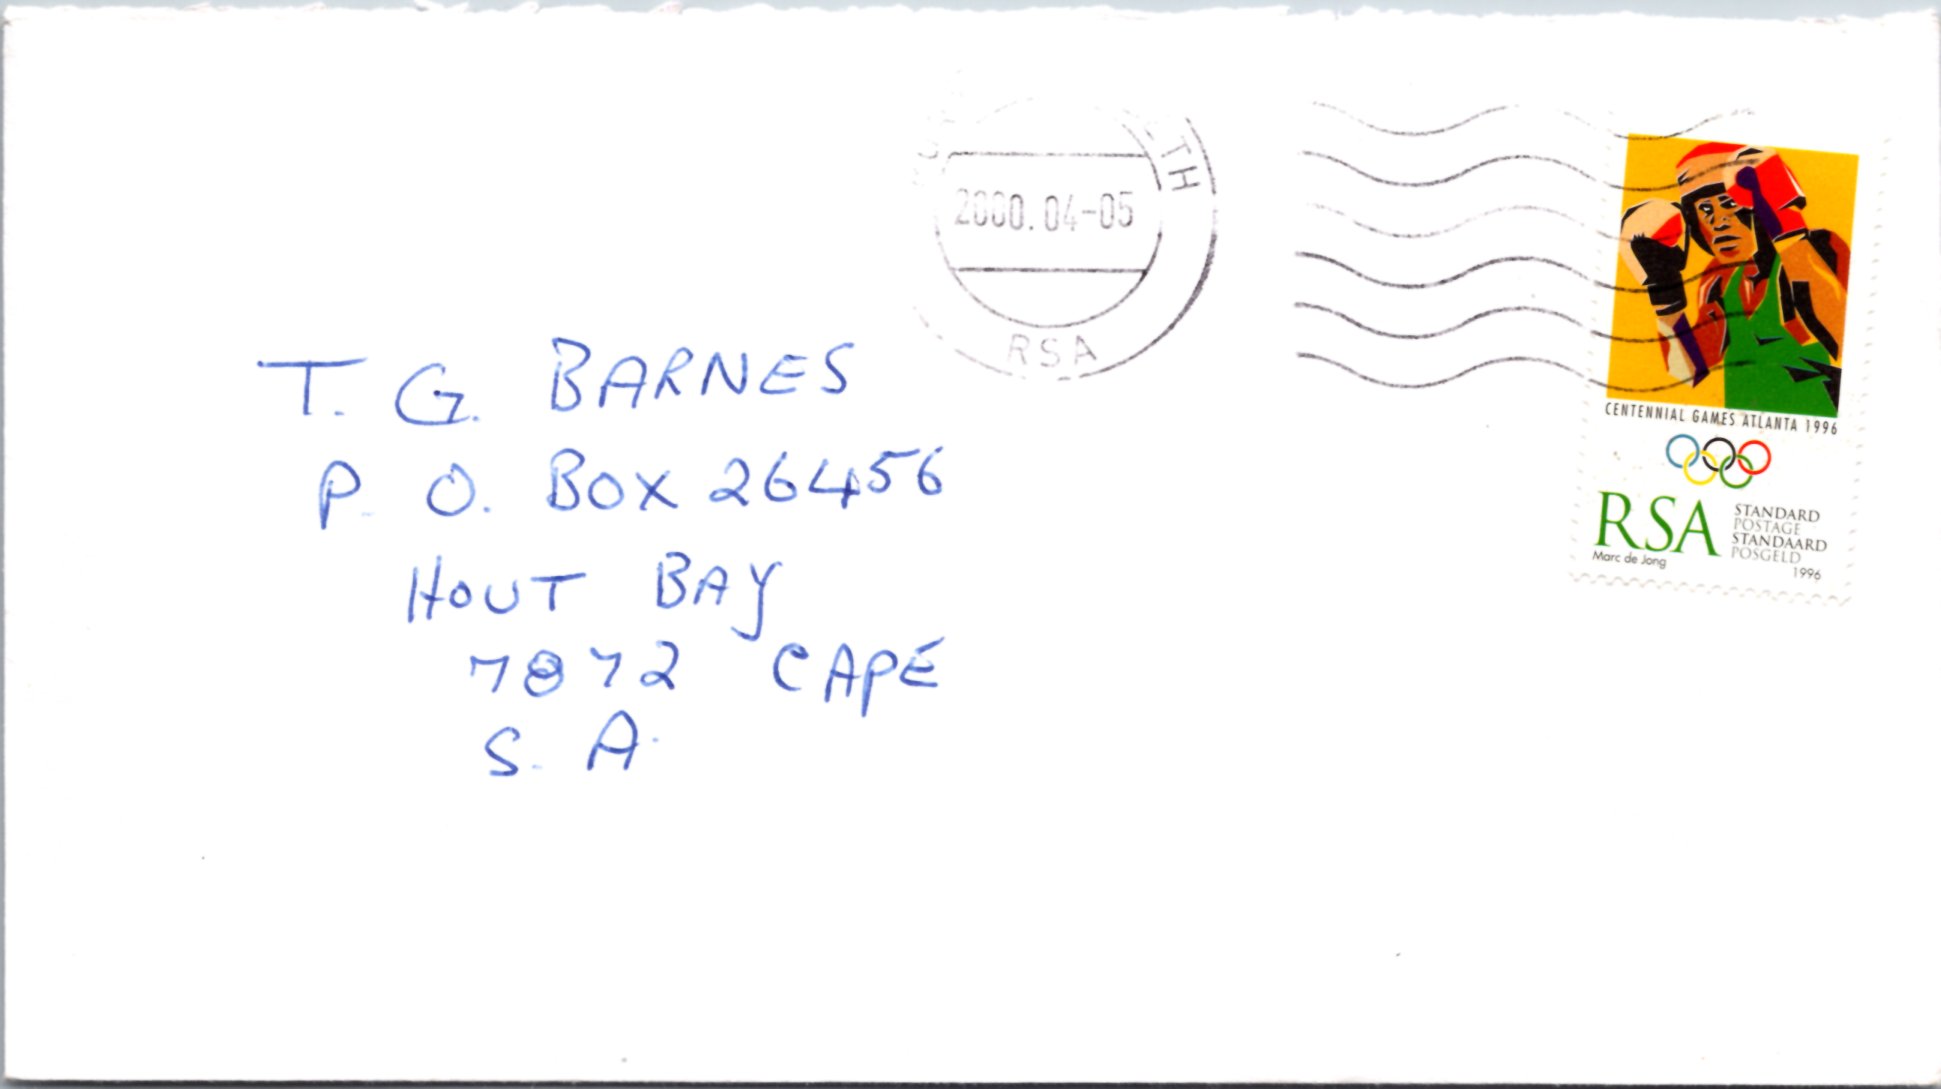 TH
2000.04-05
RSA
CENTENNIAL GAMES ATLANTA 1996
RSA
STANDARD
POSTAGE
STANDAARD
POSGELD
Marc de Jong
1996
T. G. BARNES
P. O. BOX 26456
HOUT BAY
7872 CAPE
S. A.